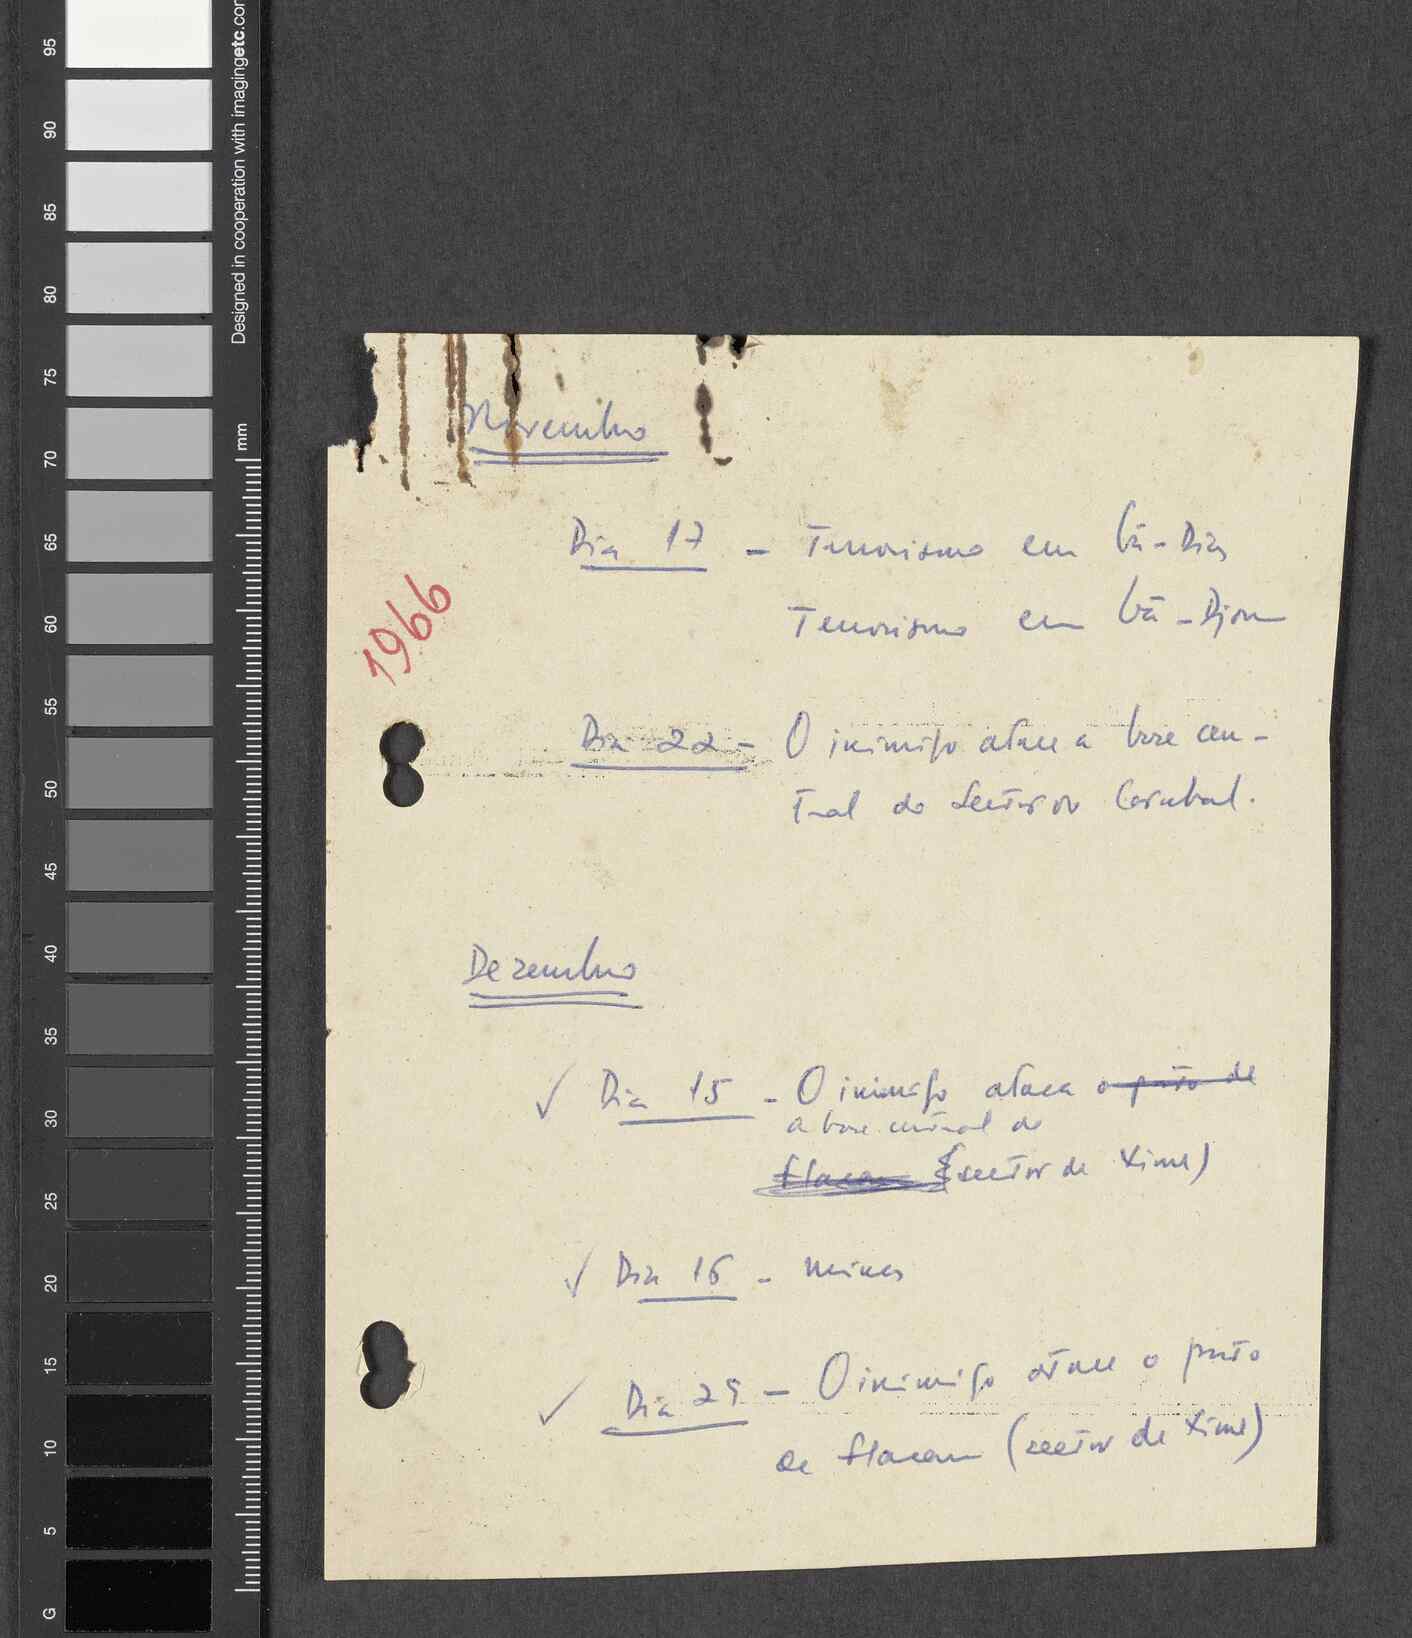 Designed in cooperation with imagingetc.com
mm
95
90
85
80
75
70
65
60
55
50
45
40
35
30
25
20
15
10
5
G
Novembro
1966
Dia 17 - Terrorismo em Gã-Dias
Terrorismo em Gã-Djon
Dia 22 - O inimigo ataca a base cen-
tral do Sector do Corubal.
Dezembro
✓ Dia 15 - O inimigo ataca o porto de
a base central de
(sector de Xime)
✓ Dia 16 - Minas
✓ Dia 29 - O inimigo ataca o porto
de (sector de Xime)